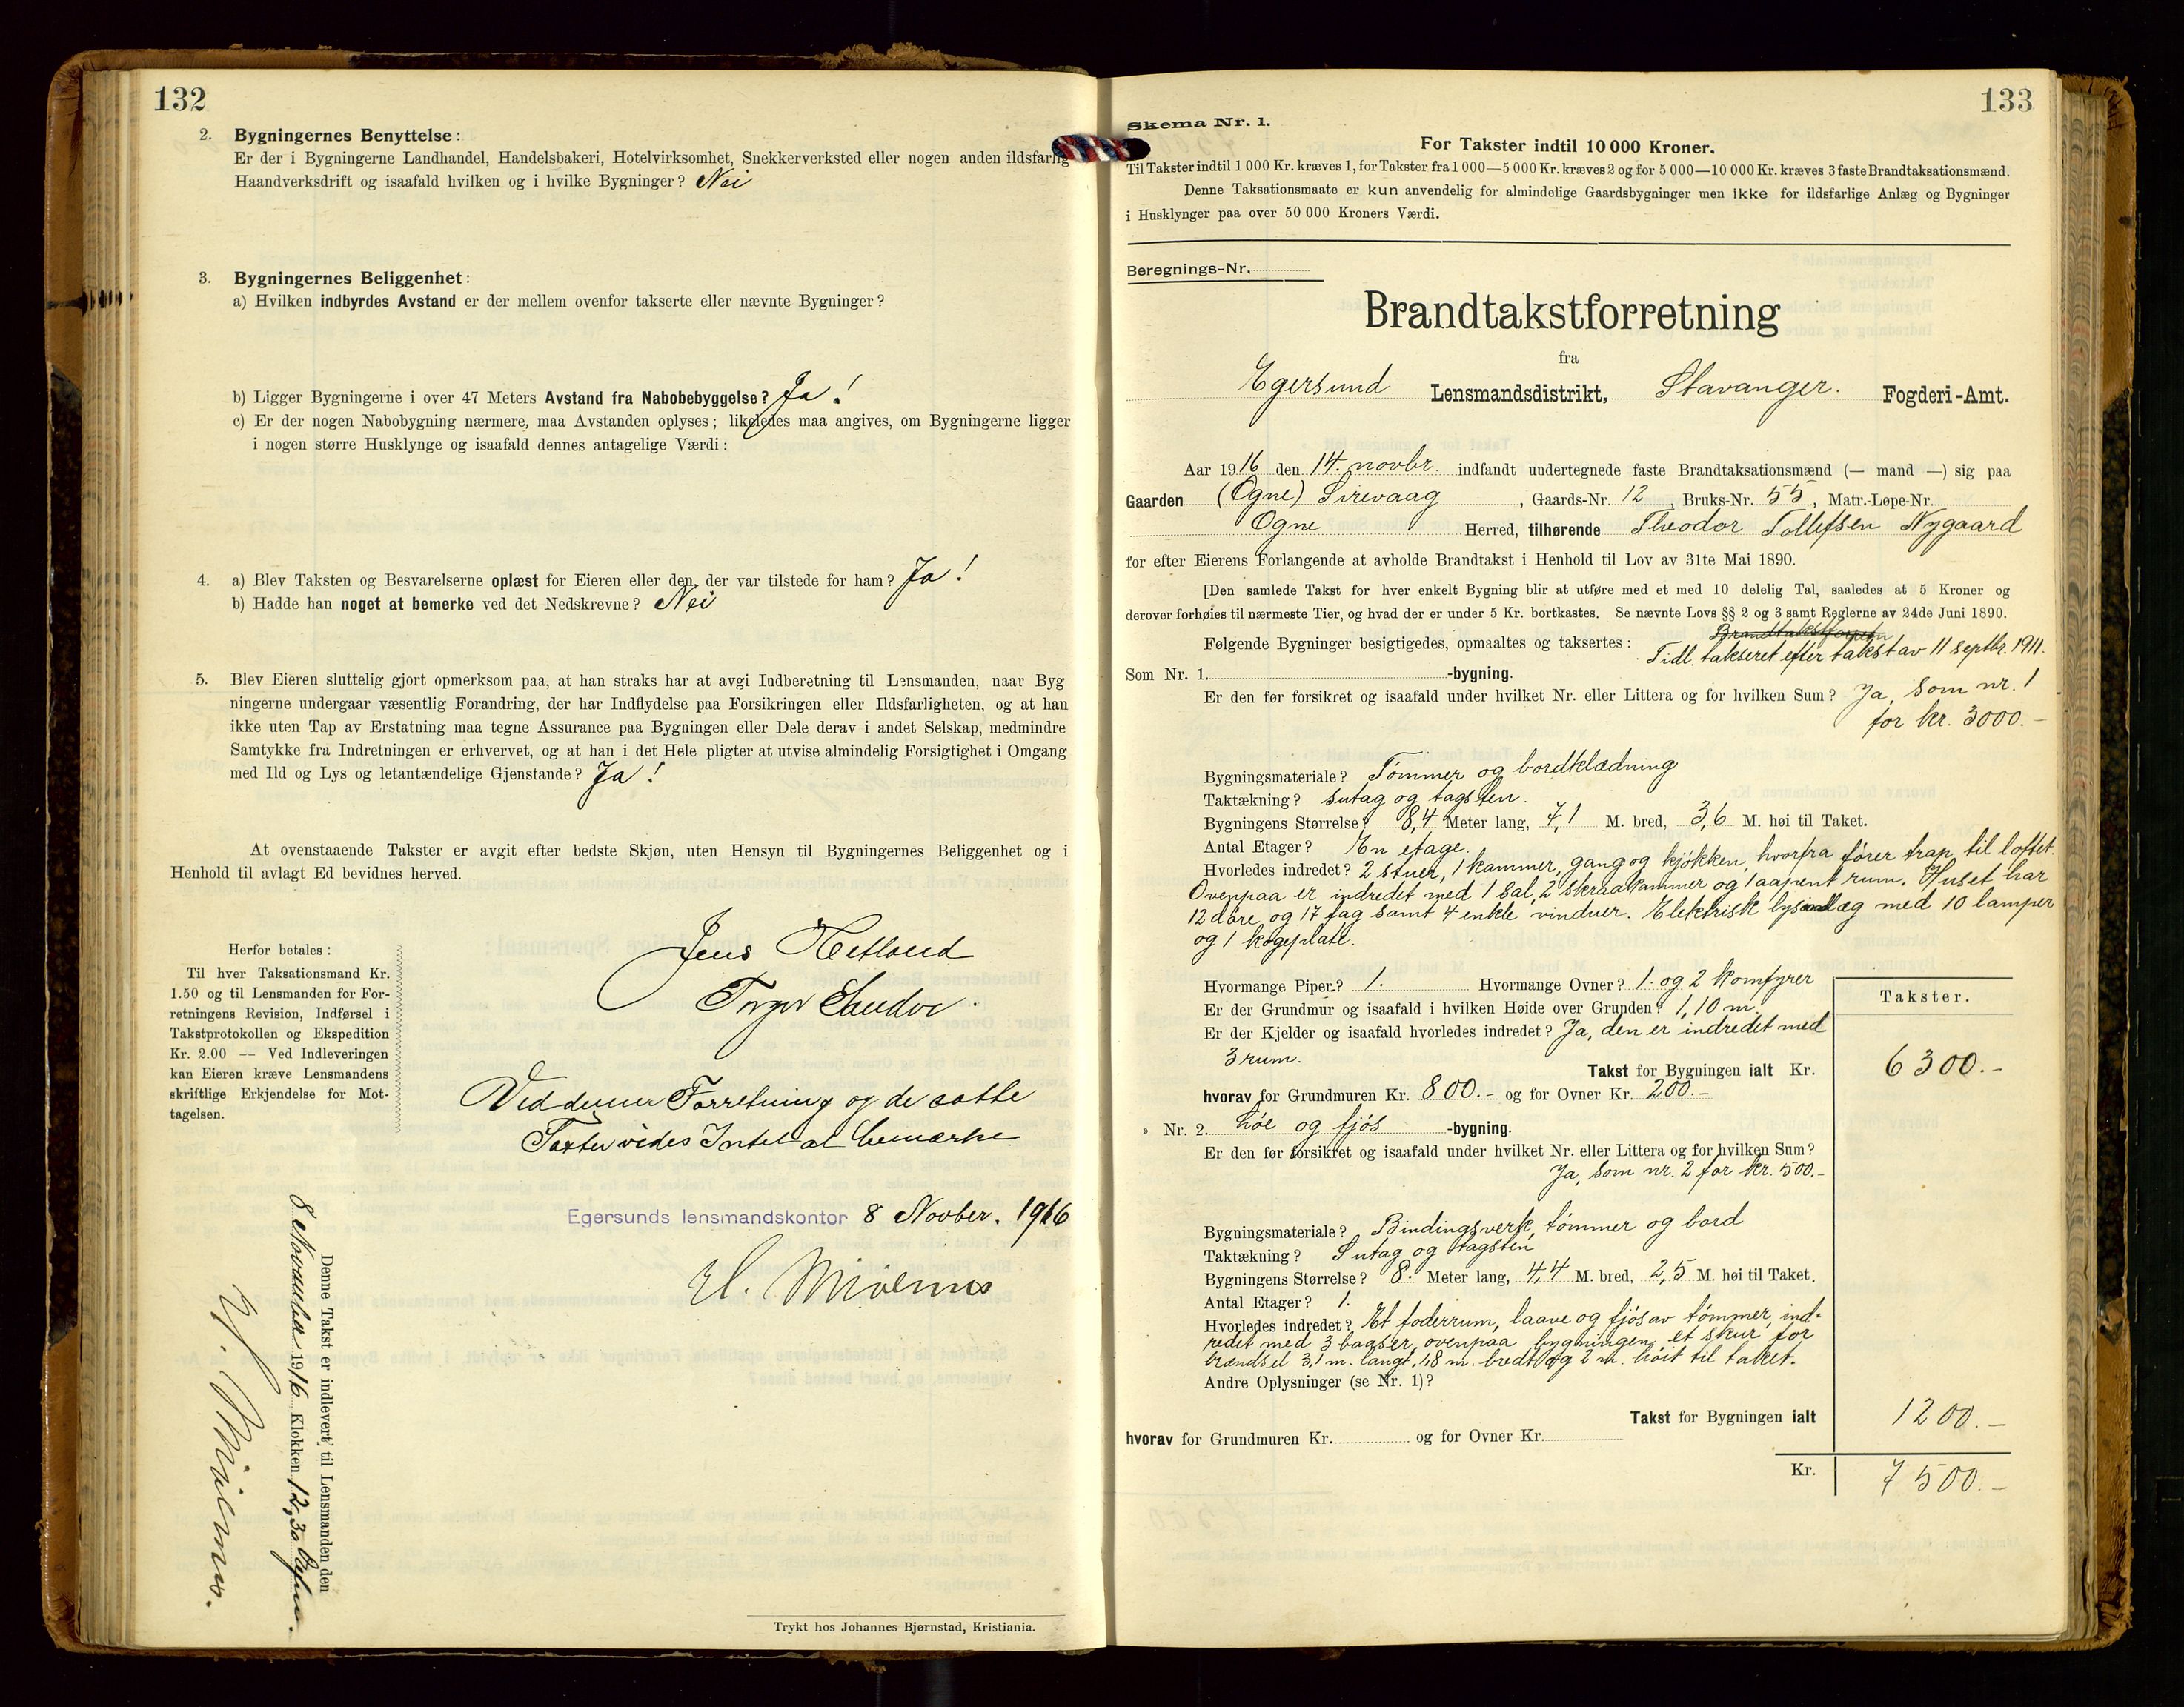 132
2. Bygningernes Benyttelse:
Er der i Bygningerne Landhandel, Handelsbakeri, Hotelvirksomhet, Snekkerverksted eller nogen anden ildsfarlig
Haandverksdrift og isaafald hvilken og i hvilke Bygninger? Nei
3. Bygningernes Beliggenhet:
a) Hvilken indbyrdes Avstand er der mellem ovenfor takserte eller nævnte Bygninger?
b) Ligger Bygningerne i over 47 Meters Avstand fra Nabobebyggelse? Ja!
c) Er der nogen Nabobygning nærmere, maa Avstanden oplyses; likeledes maa angives, om Bygningerne ligger
i nogen større Husklynge og isaafald dennes antagelige Værdi:
4. a) Blev Taksten og Besvarelserne oplæst for Eieren eller den, der var tilstede for ham? Ja!
b) Hadde han noget at bemerke ved det Nedskrevne? Nei
5. Blev Eieren sluttelig gjort opmerksom paa, at han straks har at avgi Indberetning til Lensmanden, naar Byg
ningerne undergaar væsentlig Forandring, der har Indflydelse paa Forsikringen eller Ildsfarligheten, og at han
ikke uten Tap av Erstatning maa tegne Assurance paa Bygningen eller Dele derav i andet Selskap, medmindre
Samtykke fra Indretningen er erhvervet, og at han i det Hele pligter at utvise almindelig Forsigtighet i Omgang
med Ild og Lys og letantændelige Gjenstande? Ja!
At ovenstaaende Takster er avgit efter bedste Skjøn, uten Hensyn til Bygningernes Beliggenhet og i
Henhold til avlagt Ed bevidnes herved.
Jens Hetland
Herfor betales:
Til hver Taksationsmand Kr.
1.50 og til Lensmanden for For-
retningens Revision, Indførsel i
Takstprotokollen og Ekspedition
Kr. 2.00 — Ved Indleveringen
kan Eieren kræve Lensmandens
skriftlige Erkjendelse for Mot-
tagelsen.
Ved denne Forretning og de satte
Taxter vides Intet at bemærke
Egersunds lensmandskontor 8 Novber. 1916
Denne Takst er indlevert til Lensmanden den
8 November 1916 Klokken 12,30
Trykt hos Johannes Bjørnstad, Kristiania.
133
Skema Nr. 1.
For Takster indtil 10 000 Kroner.
Til Takster indtil 1 000 Kr. kræves 1, for Takster fra 1 000—5 000 Kr. kræves 2 og for 5 000—10 000 Kr. kræves 3 faste Brandtaksationsmænd.
Denne Taksationsmaate er kun anvendelig for almindelige Gaardsbygninger men ikke for ildsfarlige Anlæg og Bygninger
i Husklynger paa over 50 000 Kroners Værdi.
Beregnings-Nr.
Brandtakstforretning
fra
Egersund Lensmandsdistrikt, Stavanger. Fogderi-Amt.
Aar 1916 den 14. novbr. indfandt undertegnede faste Brandtaksationsmænd (— mand —) sig paa
Gaarden (Ogne) Sirevaag, Gaards-Nr. 12, Bruks-Nr. 55, Matr.-Løpe-Nr.
Ogne Herred, tilhørende Theodor Tollefsen Nygaard
for efter Eierens Forlangende at avholde Brandtakst i Henhold til Lov av 31te Mai 1890.
[Den samlede Takst for hver enkelt Bygning blir at utføre med et med 10 delelig Tal, saaledes at 5 Kroner og
derover forhøies til nærmeste Tier, og hvad der er under 5 Kr. bortkastes. Se nævnte Lovs §§ 2 og 3 samt Reglerne av 24de Juni 1890.
Følgende Bygninger besigtigedes, opmaaltes og taksertes:
Tidl. takseret efter takst av 11 septbr. 1911.
Som Nr. 1. -bygning.
Er den før forsikret og isaafald under hvilket Nr. eller Littera og for hvilken Sum? Ja, som nr. 1
for kr. 3000.-
Bygningsmateriale? Tømmer og bordklædning
Taktækning? sutag og tagsten.
Bygningens Størrelse? 8,4 Meter lang, 7,1 M. bred, 3,6 M. høi til Taket.
Antal Etager? En etage.
Hvorledes indredet? 2 stuer, 1 kammer, gang og kjøkken, hvorfra fører trap til loftet.
Ovenpaa er indredet med 1 sal, 2 skraakammer og 1 aapent rum. Huset har
12 døre, og 17 fag samt 4 enkle vinduer. Elektrisk lysanlæg med 10 lamper
og 1 kogeplate.
Hvormange Piper? 1. Hvormange Ovner? 1. og 2 komfyrer
Er der Grundmur og isaafald i hvilken Høide over Grunden? 1,10 m.
Er der Kjelder og isaafald hvorledes indredet? Ja, den er indredet med
3 rum.
Takster.
Takst for Bygningen ialt Kr. 6300.-
hvorav for Grundmuren Kr. 800.- og for Ovner Kr. 200.-
» Nr. 2. Løe og fjøs -bygning.
Er den før forsikret og isaafald under hvilket Nr. eller Littera og for hvilken Sum?
Ja, som nr. 2 for kr. 500.-
Bygningsmateriale? Bindingsverk, tømmer og bord
Taktækning? Sutag og tagsten
Bygningens Størrelse? 8. Meter lang, 4,4 M. bred, 2,5 M. høi til Taket.
Antal Etager? 1.
Hvorledes indredet? Et foderrum, laave og fjøs av tømmer, ind-
redet med 3 baaser, ovenpaa bygningen, et skur for
brændsel 3,1 m. langt, 1,8 m. bredt og 2 m. høit til taket.
Andre Oplysninger (se Nr. 1)?
Takst for Bygningen ialt 1200.-
hvorav for Grundmuren Kr. og for Ovner Kr.
Kr. 7500.-